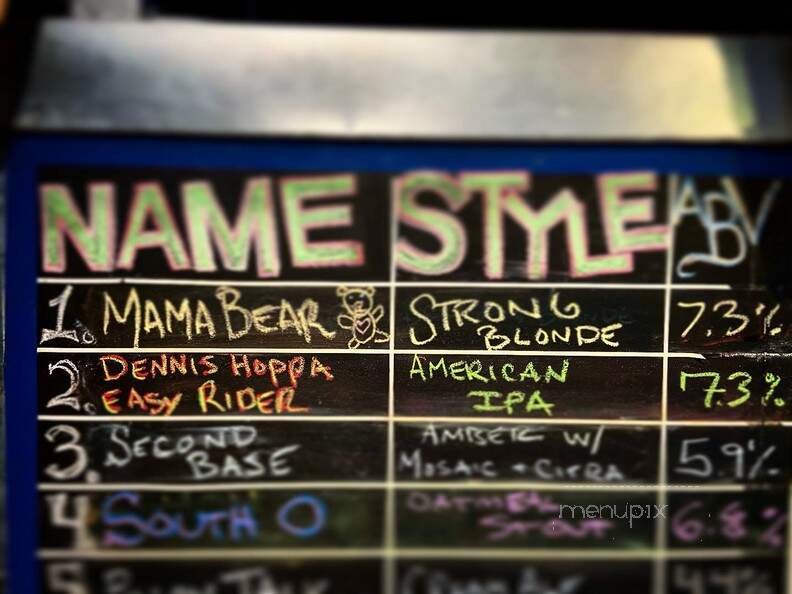 NAME STYLE ABV
1. MAMA BEAR STRONG BLONDE 7.3%
2. DENNIS HOPPA EASY RIDER AMERICAN IPA 7.3%
3. SECOND BASE AMBER W/ MOSAIC + CITRA 5.9%
4 SOUTH O OATMEAL STOUT 6.8%
menupix
5 TALK 4.4%